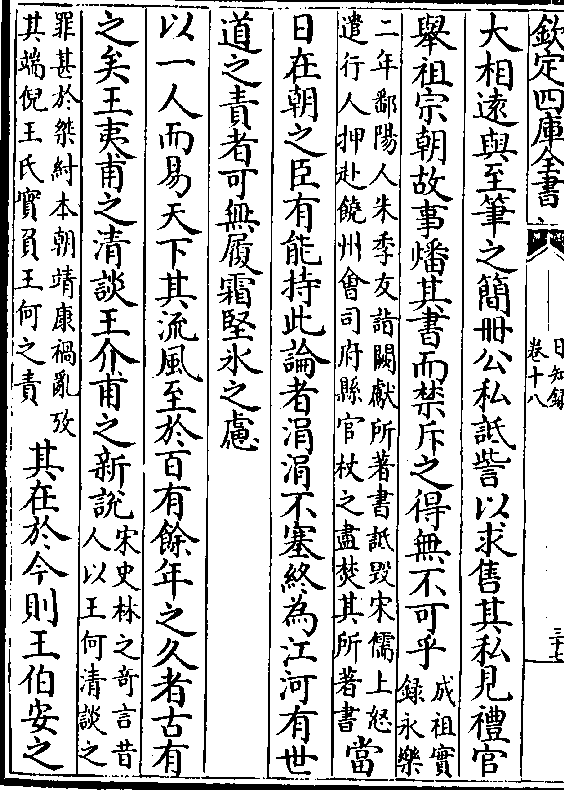 欽定四庫全書
日知錄
卷十八
三十七
大相遠與至筆之簡冊公私詆訾以求售其私見禮官
舉祖宗朝故事燔其書而禁斥之得無不可乎
成祖實
錄永樂
二年鄱陽人朱季友詣闕獻所著書詆毀宋儒上怒
遣行人押赴饒州會司府縣官杖之盡焚其所著書
當
日在朝之臣有能持此論者涓涓不塞終為江河有世
道之責者可無履霜堅氷之慮
以一人而易天下其流風至於百有餘年之久者古有
之矣王夷甫之清談王介甫之新說
宋史林之竒言昔
人以王何清談之
罪甚於桀紂本朝靖康禍亂攷
其端倪王氏實負王何之責
其在於今則王伯安之